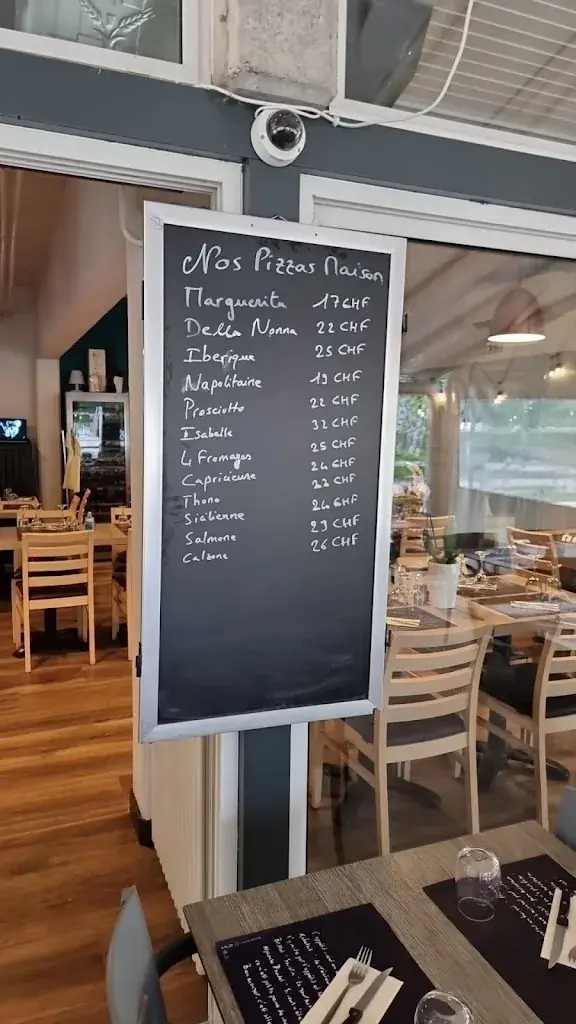 Nos Pizzas Maison
Marguerita 17 CHF
Della Nonna 22 CHF
Iberique 25 CHF
Napolitaine 19 CHF
Prosciotto 22 CHF
Isabelle 32 CHF
4 Fromages 25 CHF
Capricieuse 24 CHF
Thono 22 CHF
Sicilienne 24 CHF
Salmone 29 CHF
Calzone 26 CHF